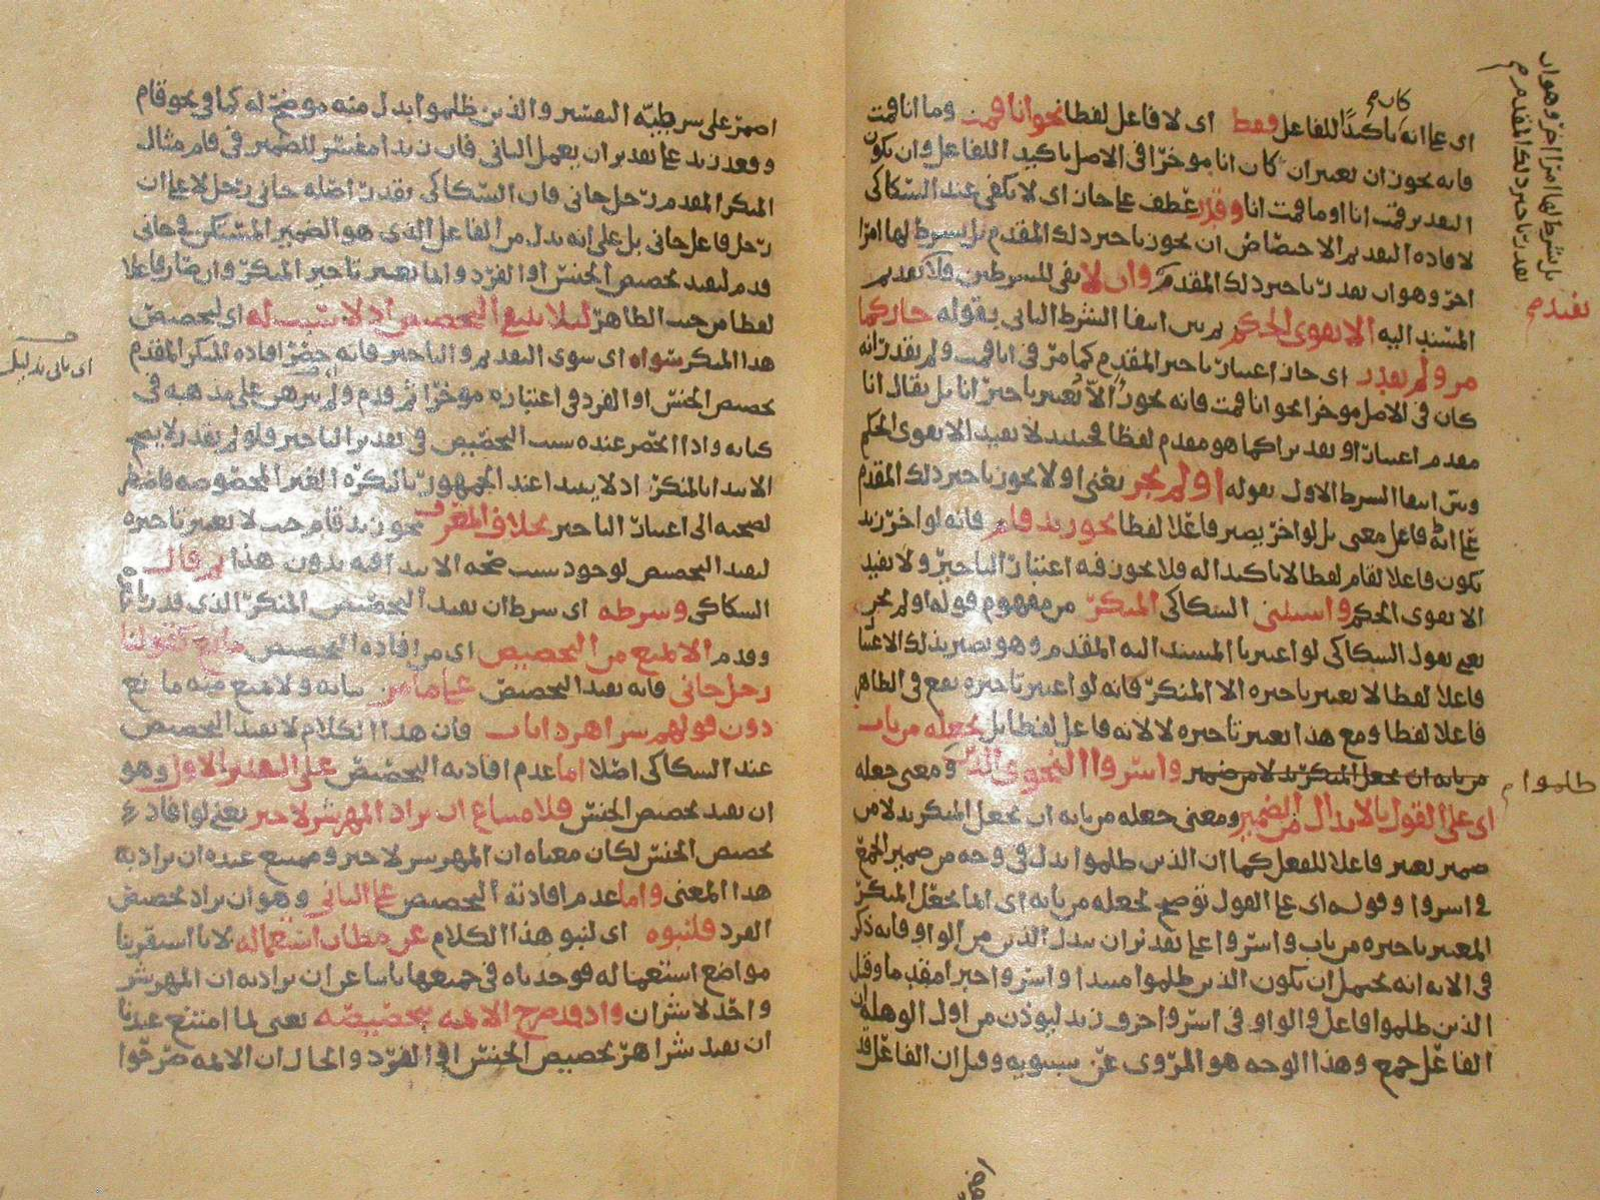 اى على انه تاكيدا للفاعل فقط اى لا فاعل لفظا نحو انا قمت وما انا قمت
فانه يجوز ان يعتبر ان كان انا موخرا فى الاصل تاكيدا للفاعل وان يكون
التقدير قمت انا او ما قمت انا وقدر عطف على جاز اى لا يكفى عند السكاكى
لافاده التقديم الاختصاص ان يجوز تاخير ذلك المقدم بل شرط لها امرا
اخر وهو ان يقدر تاخير ذلك المقدم والا لا يفى للشرطين فلا تقديم
المسند اليه الا تقوى الحكم ثم بين انتفا الشرط الثانى بقوله جاز كما
مر ولم يقدر اى جاز اعتبار تاخير المقدم كما مر فى انا قمت ولم يقدر انه
كان فى الاصل موخرا نحو انا قمت فانه يجوز الا يعتبر تاخير انا بل يقال انا
مقدم اعتبارا وتقديرا كما هو مقدم لفظا فحينئذ لا يفيد الا تقوى الحكم
وبين انتفا الشرط الاول بقوله او لم يجز يعنى او لا يجوز تاخير ذلك المقدم
على انه فاعل معنى بل لو اخر يصير فاعلا لفظا نحو زيد قام فانه لو اخر زيد
يكون فاعلا لقام لفظا لا تاكيدا له فلا يجوز فيه اعتبار التاخير ولا يفيد
الا تقوى الحكم واستثنى السكاكى المنكر من مفهوم قوله او لم يجز
يعنى يقول السكاكى لو اعتبرنا المسند اليه المقدم وهو يصير بذلك الاعتبار
فاعلا لفظا لا يعتبر تاخيره الا المنكر فانه لو اعتبر تاخيره يقع فى الظاهر
فاعلا لفظا ومع هذا يعتبر تاخيره لا لانه فاعل لفظا بل بجعله من باب
واسروا النجوى الذين ومعنى جعله
من بابه ان يجعل المنكر بدلا من ضمير
اى على القول بالابدال من الضمير ومعنى جعله من بابه ان يجعل المنكر بدلا من
ضمير يعتبر فاعلا للفعل كما ان الذين ظلموا بدل فى وجه من ضمير الجمع
فى اسروا وقوله اى على القول توضيح لجعله من بابه اى انما يجعل المنكر
المعتبر تاخيره من باب واسروا على تقدير ان يبدل الذين من الواو فانه ذكر
فى الايه انه يحتمل ان يكون الذين ظلموا مبتدا واسروا خبرا مقدما وقيل
الذين ظلموا فاعل والواو فى اسروا حرف زيد ليوذن من اول الوهلة ان
الفاعل جمع وهذا الوجه هو المروى عن سيبويه وقيل ان الفاعل قد
كان
بل شرط لها امرا اخر وهو ان
يقدر تاخير ذلك المقدم
تقديم
ظلموا
اضمر على شريطة التفسير والذين ظلموا ابدل منه موضح له كما فى نحو قام
وقعد زيد على تقدير ان يعمل الثانى فان زيدا مفسر للضمير فى قام مثال
المنكر المقدم رجل جانى فان السكاكى يقدر اصله جانى رجل لا على ان
رجل فاعل جانى بل على انه بدل من الفاعل الذى هو الضمير المستكن فى جانى
قدم ليفيد تخصيص الجنس او الفرد وانما يعتبر تاخير المنكر وان صار فاعلا
لفظا من حيث الظاهر لئلا ينتفى التخصيص اذ لا سبب له اى لتخصيص
هذا المنكر سواه اى سوى التقديم والتاخير فانه حصر افاده المنكر المقدم
تخصيص الجنس او الفرد فى اعتباره موخرا ثم قدم ولم يبرهن على مذهبه فى
كتابه واذا انحصر عنده سبب التخصيص فى تقدير التاخير فلو لم يقدر لا يصح
الابتدا بالمنكر اذ لا يبتدا عند الجمهور بالنكرة الغير المخصوصه فاضطر
لصحته الى اعتبار التاخير بخلاف المعرف نحو زيد قام حيث لا يعتبر تاخيره
ليفيد التخصيص لوجود سبب صحه الابتدا فيه بدون هذا ثم قال
السكاكى وشرطه اى شرط ان يفيد التخصيص المنكر الذى قدر تاخيره
وقدم الا يمنع من التخصيص اى من افاده التخصيص مانع كقولنا
رجل جانى فانه يفيد التخصيص على ما مر بيانه ولا يمنع منه مانع
دون قولهم شر اهر ذا ناب فان هذا الكلام لا يفيد التخصيص
عند السكاكى اصلا اما عدم افادته التخصيص على التقدير الاول وهو
ان يفيد تخصيص الجنس فلامتناع ان يراد المهر شر لا خير يعنى لو افاد
تخصيص الجنس لكان معناه ان المهر شر لا خير وممتنع عنده ان يراد به
هذا المعنى واما عدم افادته التخصيص على الثانى وهو ان يراد تخصيص
الفرد فلنبوه اى لنبو هذا الكلام عن مظان استعماله لانا استقرينا
مواضع استعماله فوجدناه فى جميعها نابيا عن ان يراد به ان المهر شر
واحد لا شران واذ قد صرح الائمه بتخصيصه يعنى لما امتنع عندنا
ان يفيد شر اهر تخصيص الجنس او الفرد والحال ان الائمه صرحوا